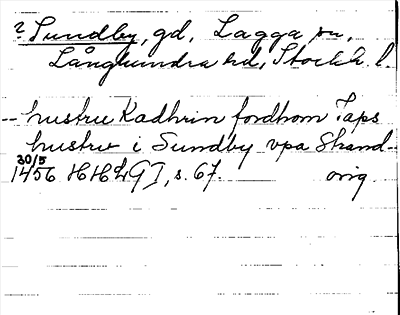 ? Sundby, gd, Lagga sn,
Långhundra hd, Stockh. l.
-- hustru Kadhrin fordhom Taps
hustru i Sundby vpa Skand--
30/5
1456 HHLGI, s. 67. orig